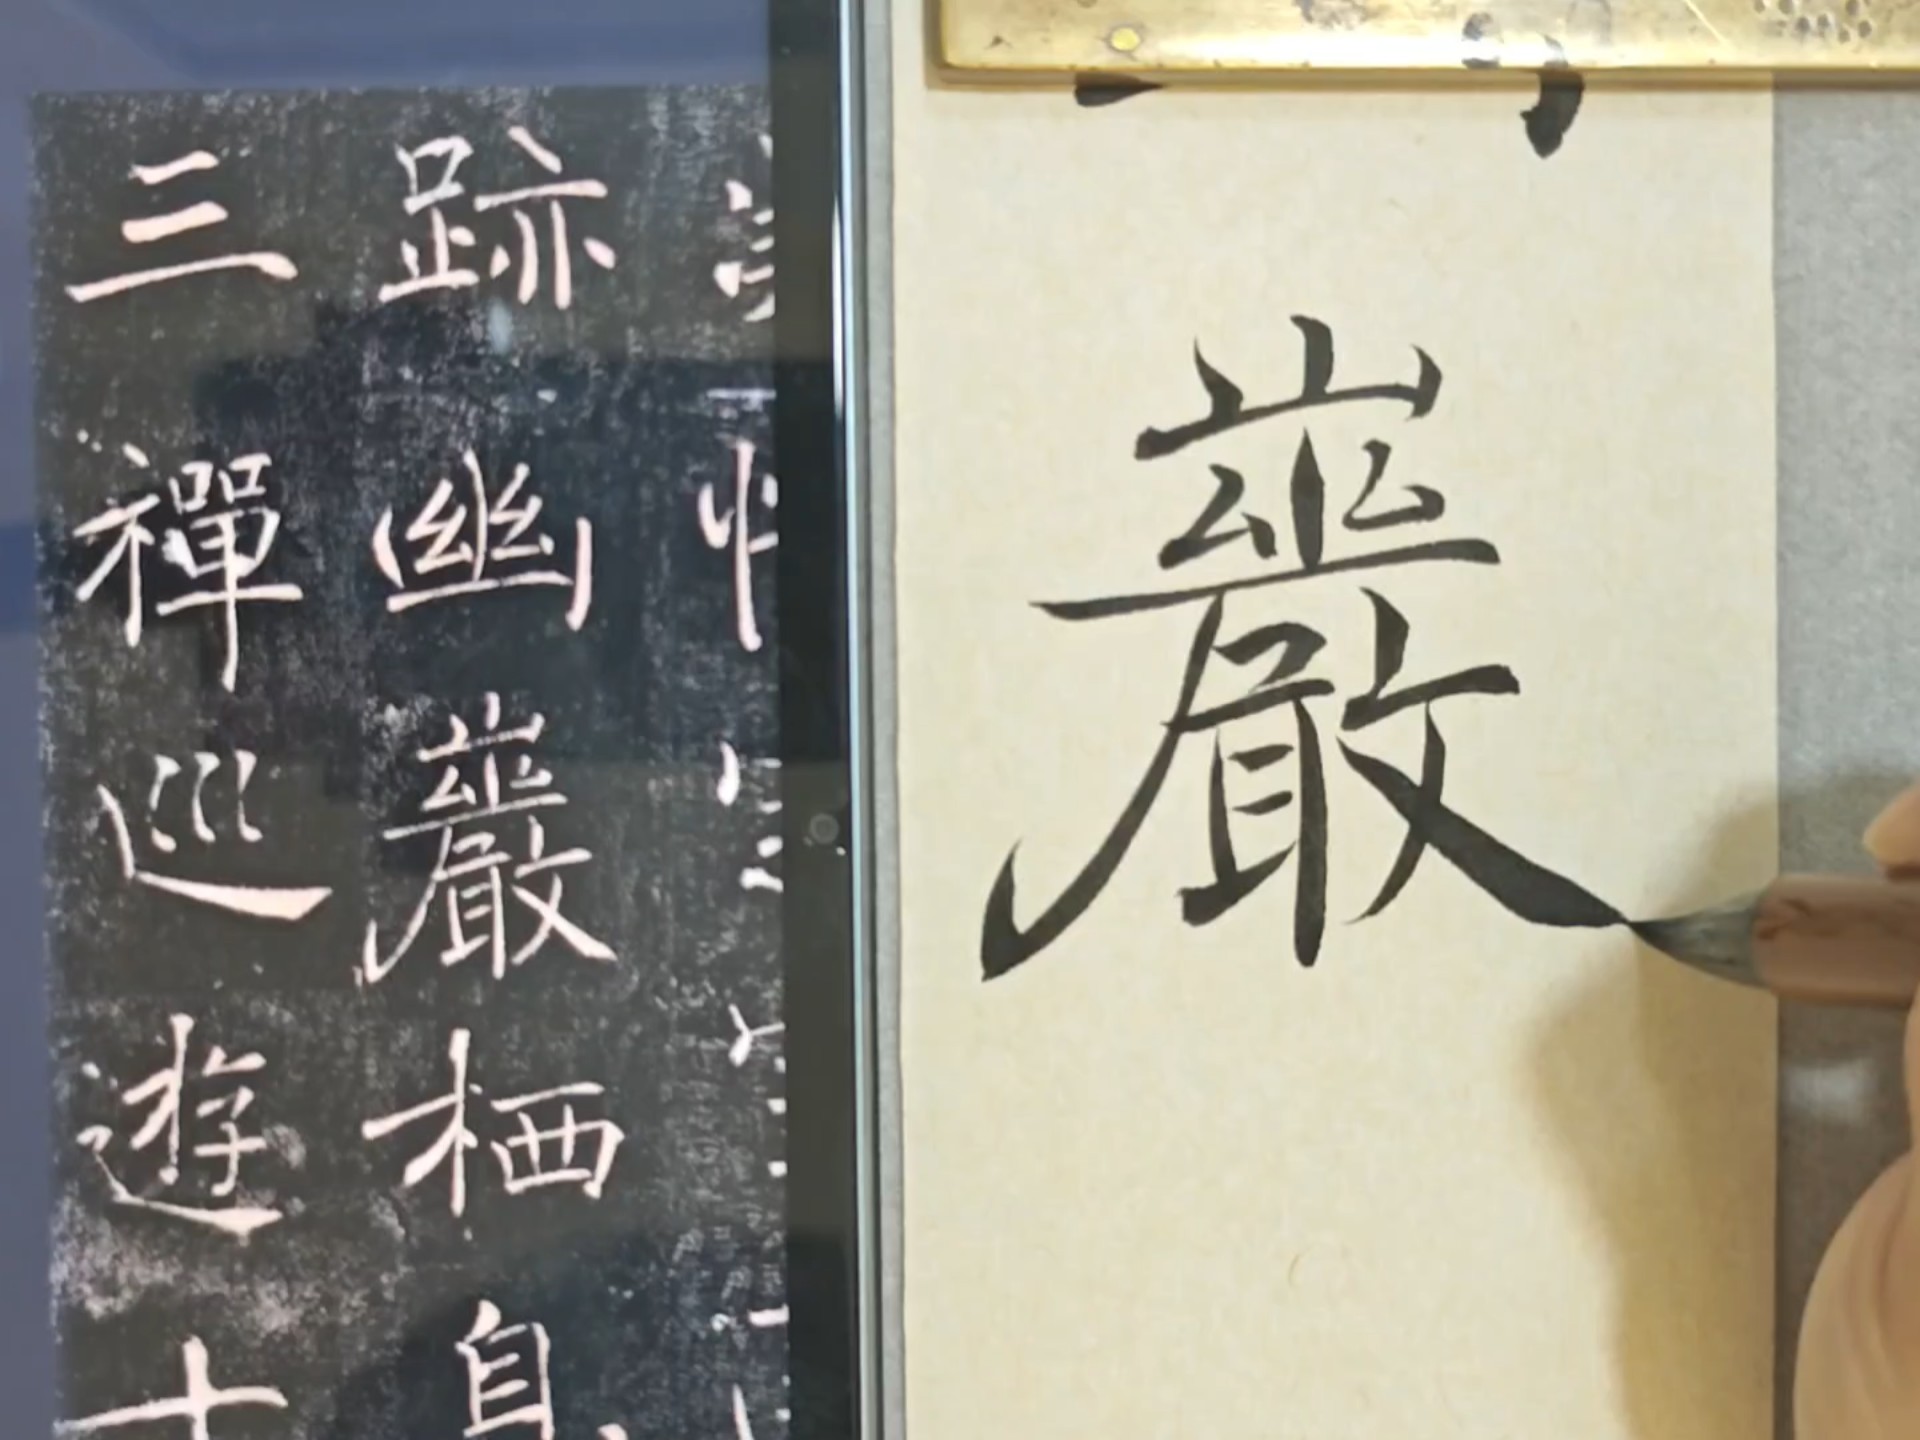 跡幽巖栖息
三禪巡遊十
巖